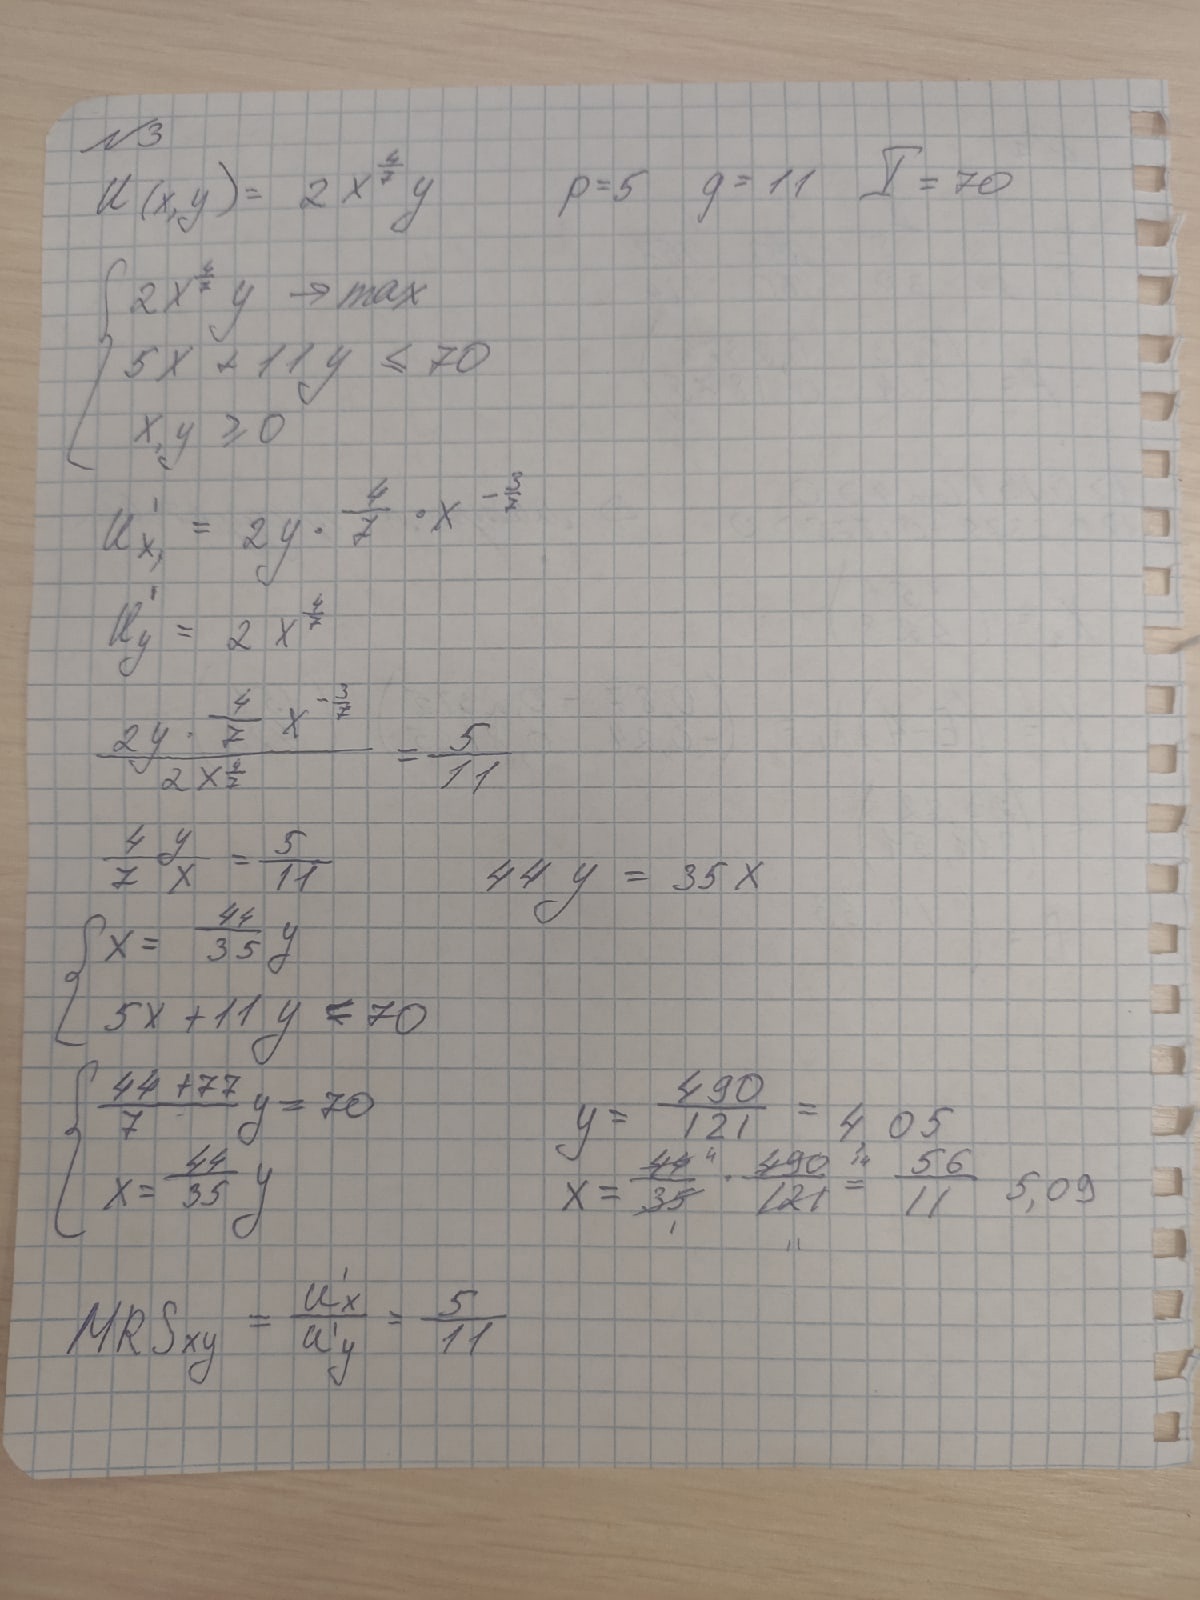 №3
U(x,y) = 2x^{4/7} y   p=5   q=11   I=70
{ 2x^{4/7} y → max
5x + 11y ≤ 70
x,y ≥ 0
U'x, = 2y · 4/7 · x^{-3/7}
U'y = 2x^{4/7}
(2y · 4/7 x^{-3/7}) / (2x^{4/7}) = 5/11
4/7 y/x = 5/11   44y = 35x
{ x = 44/35 y
5x + 11y = 70
{ (44+77)/7 y = 70   y = 490/121 = 4,05
x = 44/35 y   x = 44/35 · 490/121 = 56/11   5,09
MRSxy = u'x/u'y = 5/11